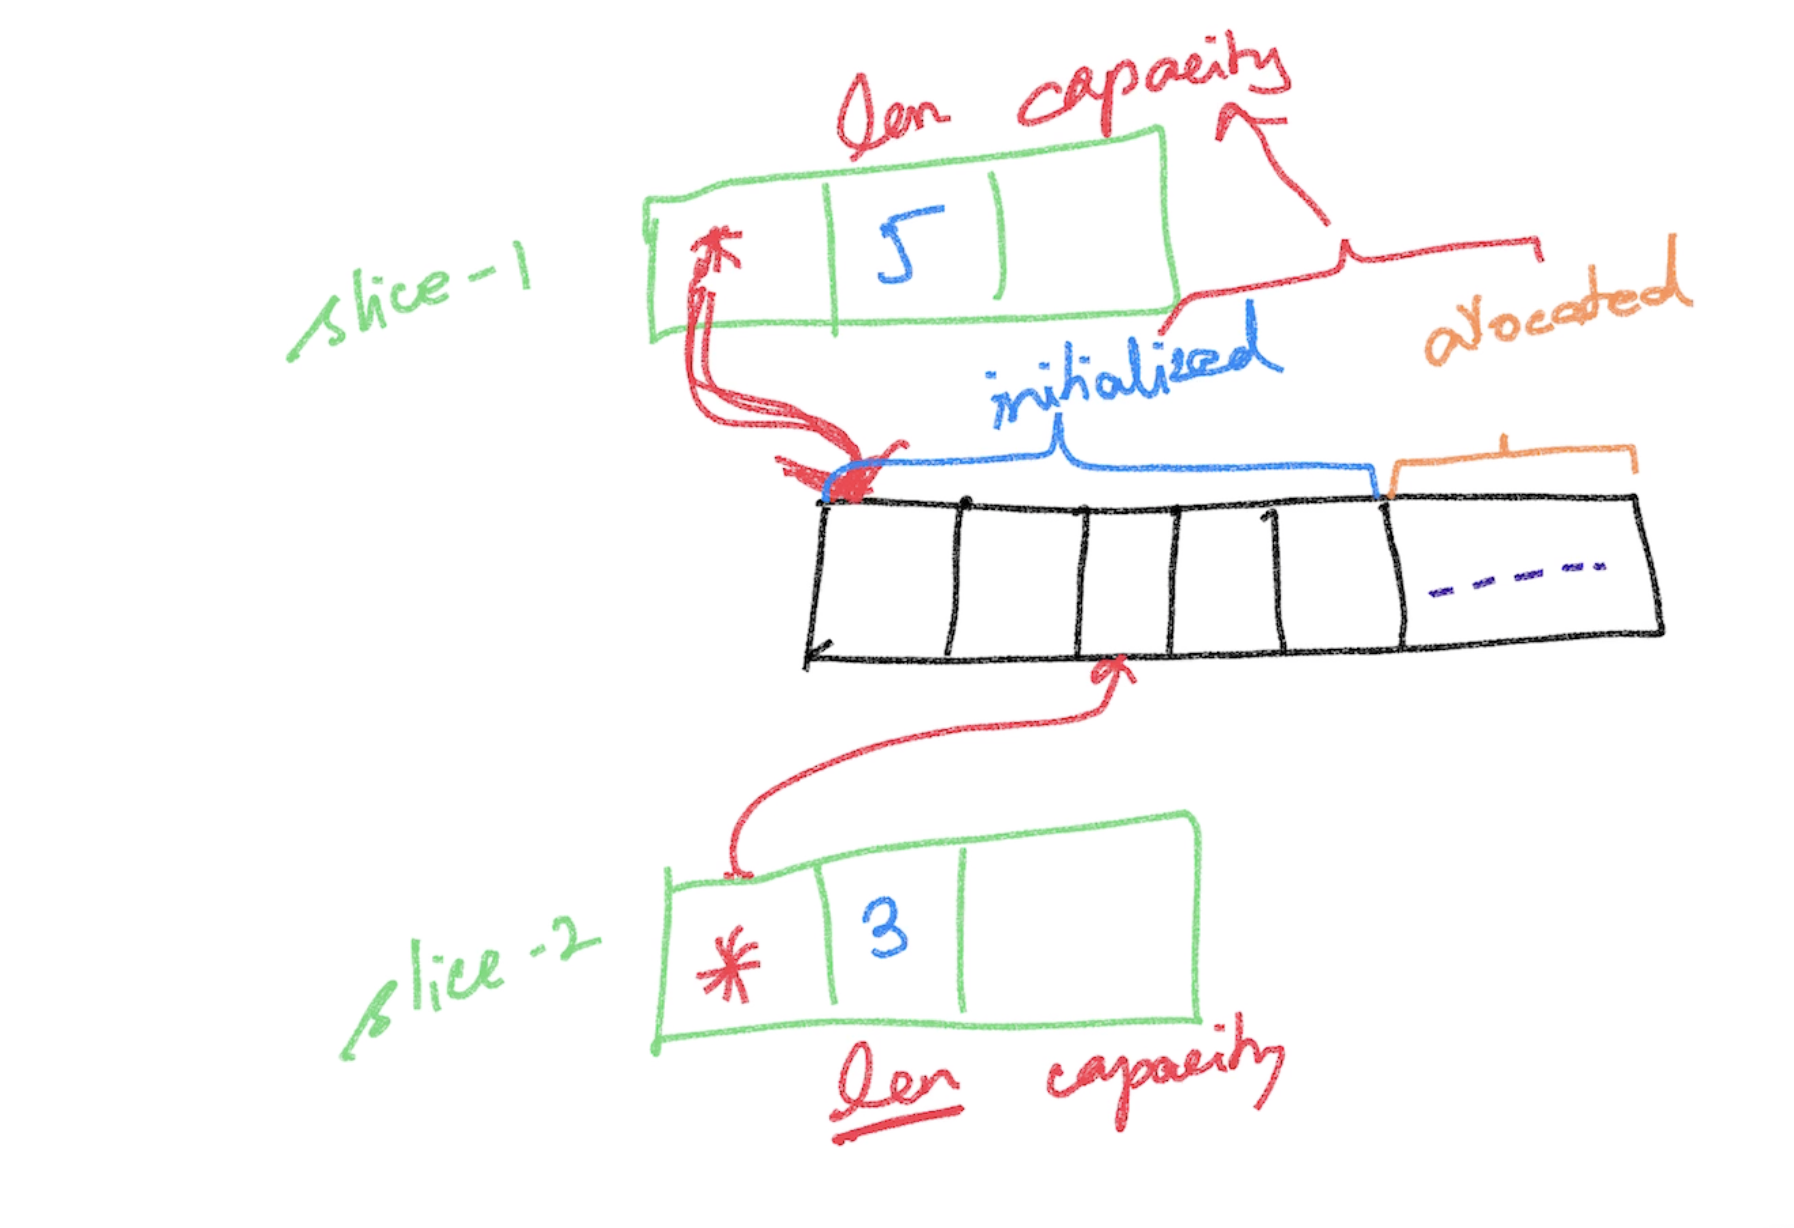 len capacity
slice-1 * 5
initialized allocated
slice-2 * 3
len capacity